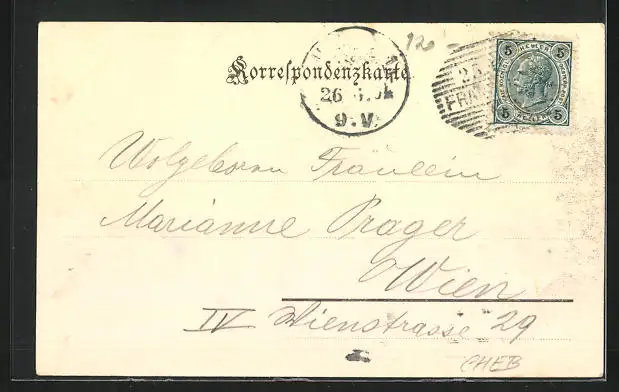 12
5 HELLER 5
Korrespondenzkarte
26
9.V.
FRAN
5 HELLER 5
Wolgeboren Fräulein
Marianne Prager
Wien
IV Wienstrasse 29
CHEB